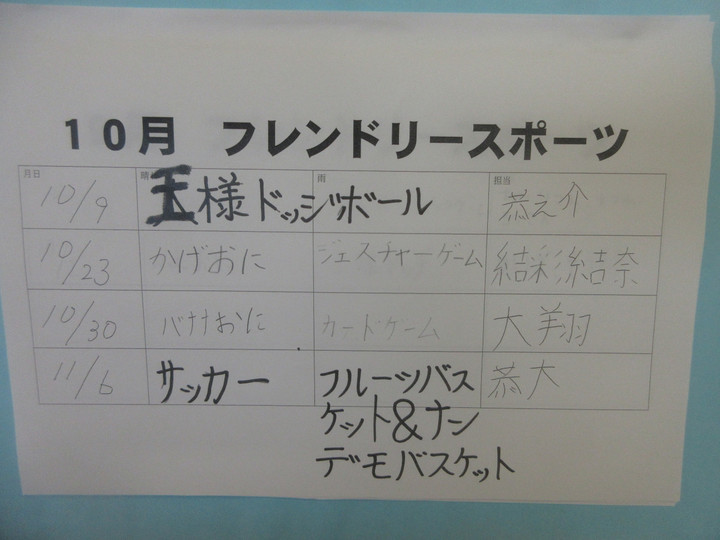 10月 フレンドリースポーツ
月日 晴 雨 担当
10/9 王様ドッジボール 恭之介
10/23 かげおに ジェスチャーゲーム 結彩 結奈
10/30 バナナおに カードゲーム 大翔
11/6 サッカー フルーツバス 恭大
ケット&ナン
デモバスケット